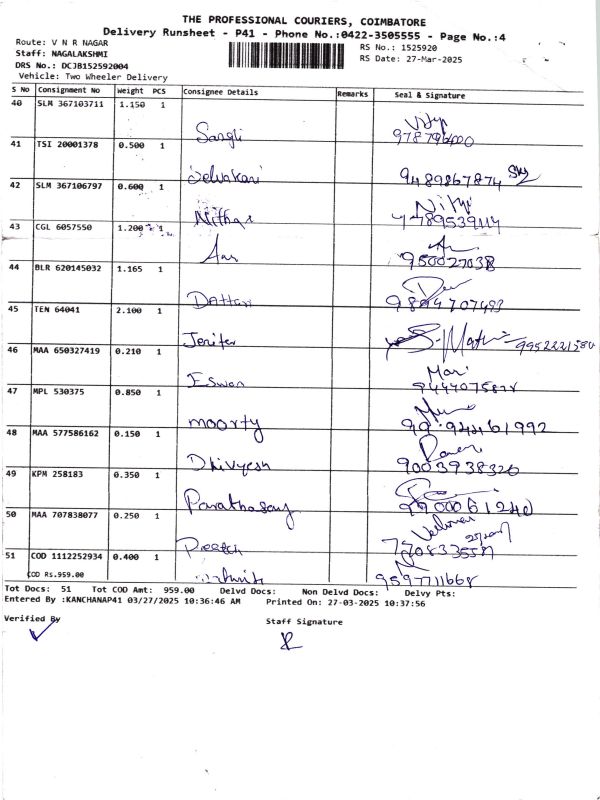 THE PROFESSIONAL COURIERS, COIMBATORE
Delivery Runsheet - P41 - Phone No.:0422-3505555 - Page No.:4
Route: V N R NAGAR
Staff: NAGALAKSHMI
DRS No.: DCJB152592004
Vehicle: Two Wheeler Delivery
RS No.: 1525920
RS Date: 27-Mar-2025
S No Consignment No Weight PCS Consignee Details Remarks Seal & Signature
40 SLM 367103711 1.150 1
Sangli
41 TSI 20001378 0.500 1
Selvakani 9489867874
42 SLM 367106797 0.600 1
Nithya
43 CGL 6057550 1.200 1
950027038
44 BLR 620145032 1.165 1
Dattan 9894707493
45 TEN 64041 2.100 1
Jenifer
46 MAA 650327419 0.210 1
Eswan Mari
47 MPL 530375 0.850 1
moorty
48 MAA 577586162 0.150 1
Dhivyesh 9003938320
49 KPM 258183 0.350 1
50 MAA 707838077 0.250 1
51 COD 1112252934 0.400 1
COD Rs.959.00 9597711668
Tot Docs: 51 Tot COD Amt: 959.00 Delvd Docs: Non Delvd Docs: Delvy Pts:
Entered By :KANCHANAP41 03/27/2025 10:36:46 AM Printed On: 27-03-2025 10:37:56
Verified By Staff Signature